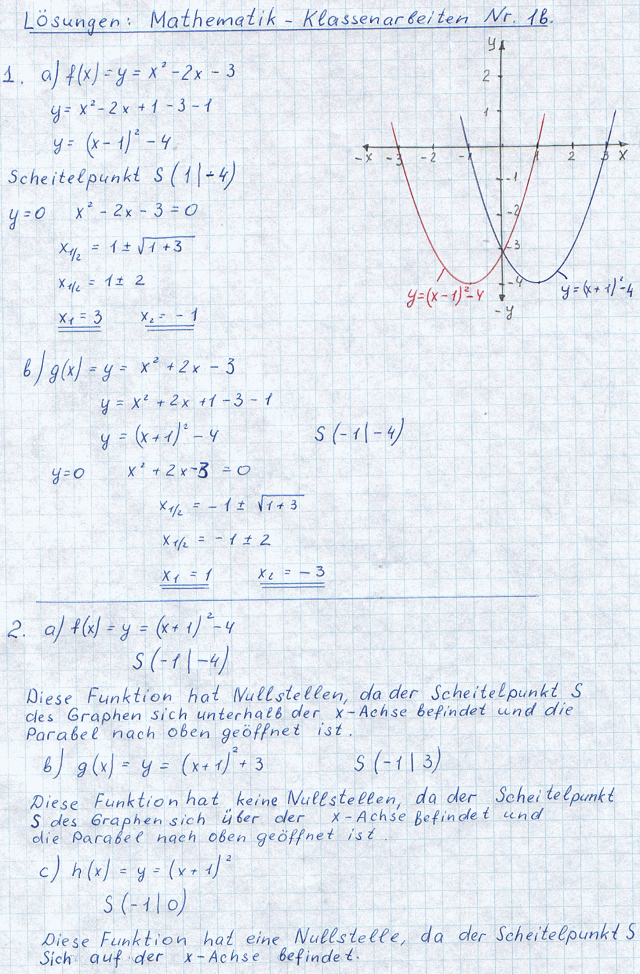 Lösungen: Mathematik - Klassenarbeiten Nr. 1b.
1. a) f(x) = y = x² - 2x - 3
y = x² - 2x + 1 - 3 - 1
y = (x - 1)² - 4
Scheitelpunkt S(1|-4)
y=0 x² - 2x - 3 = 0
x1/2 = 1 ± √1+3
x1/2 = 1 ± 2
x1 = 3 x2 = -1
y
2
1
-x -3 -2 -1 1 2 3 x
-1
-2
-3
-4
y=(x-1)²-4 y=(x+1)²-4
-y
b) g(x) = y = x² + 2x - 3
y = x² + 2x + 1 - 3 - 1
y = (x+1)² - 4 S(-1|-4)
y=0 x² + 2x - 3 = 0
x1/2 = -1 ± √1+3
x1/2 = -1 ± 2
x1 = 1 x2 = -3
2. a) f(x) = y = (x+1)² - 4
S(-1|-4)
Diese Funktion hat Nullstellen, da der Scheitelpunkt S
des Graphen sich unterhalb der x-Achse befindet und die
Parabel nach oben geöffnet ist.
b) g(x) = y = (x+1)² + 3 S(-1|3)
Diese Funktion hat keine Nullstellen, da der Scheitelpunkt
S des Graphen sich über der x-Achse befindet und
die Parabel nach oben geöffnet ist
c) h(x) = y = (x+1)²
S(-1|0)
Diese Funktion hat eine Nullstelle, da der Scheitelpunkt S
Sich auf der x-Achse befindet.